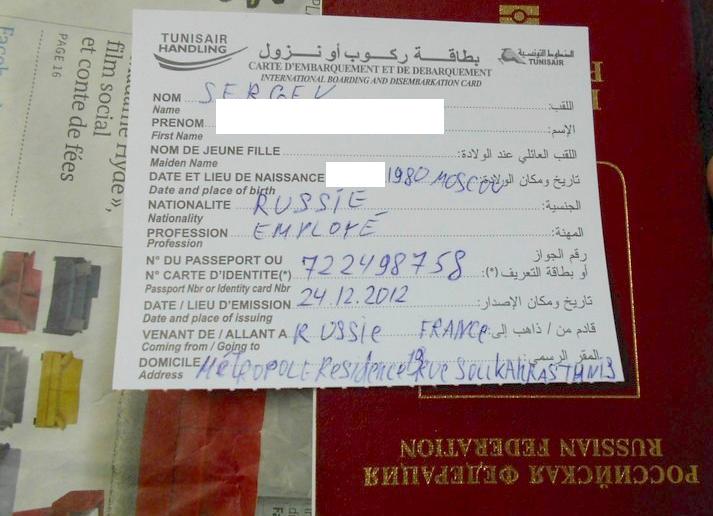 TUNISAIR
HANDLING
بطاقة ركوب أو نزول
الخطوط التونسية
TUNISAIR
CARTE D'EMBARQUEMENT ET DE DEBARQUEMENT
INTERNATIONAL BOARDING AND DISEMBARKATION CARD
NOM SERGEV اللقب:
Name
PRENOM الإسم:
First Name
NOM DE JEUNE FILLE اللقب العائلي عند الولادة:
Maiden Name
DATE ET LIEU DE NAISSANCE 1980 MOSCOU تاريخ ومكان الولادة:
Date and place of birth
NATIONALITE RUSSIE الجنسية:
Nationality
PROFESSION EMPLOYÉ المهنة:
Profession
N° DU PASSEPORT OU رقم الجواز
N° CARTE D'IDENTITE(*) 722498758 أو بطاقة التعريف (*):
Passport Nbr or Identity card Nbr
DATE / LIEU D'EMISSION 24.12.2012 تاريخ ومكان الإصدار:
Date and place of issuing
VENANT DE / ALLANT A RUSSIE FRANCE قادم من / ذاهب إلى:
Coming from / Going to
DOMICILE Métropole Residence 19 rue المقر الرسمي:
Address
film social
et conte de fées
PAGE 16
РОССИЙСКАЯ ФЕДЕРАЦИЯ
RUSSIAN FEDERATION